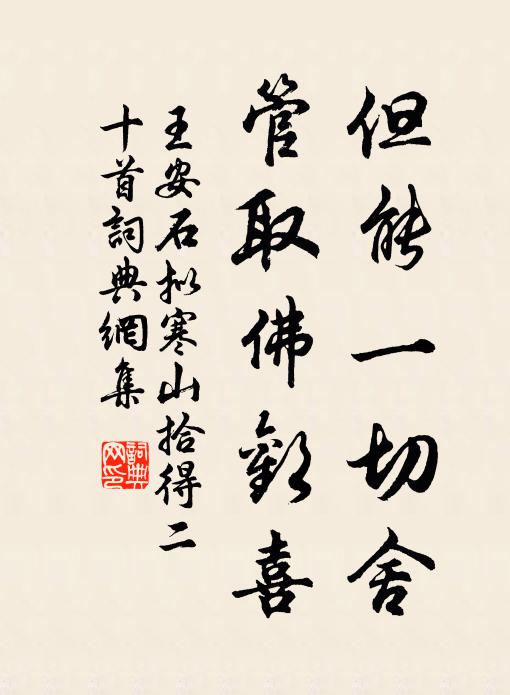 但能一切舍
管取佛歡喜
王安石拟寒山拾得二
十首詞典網集
詞典
网印